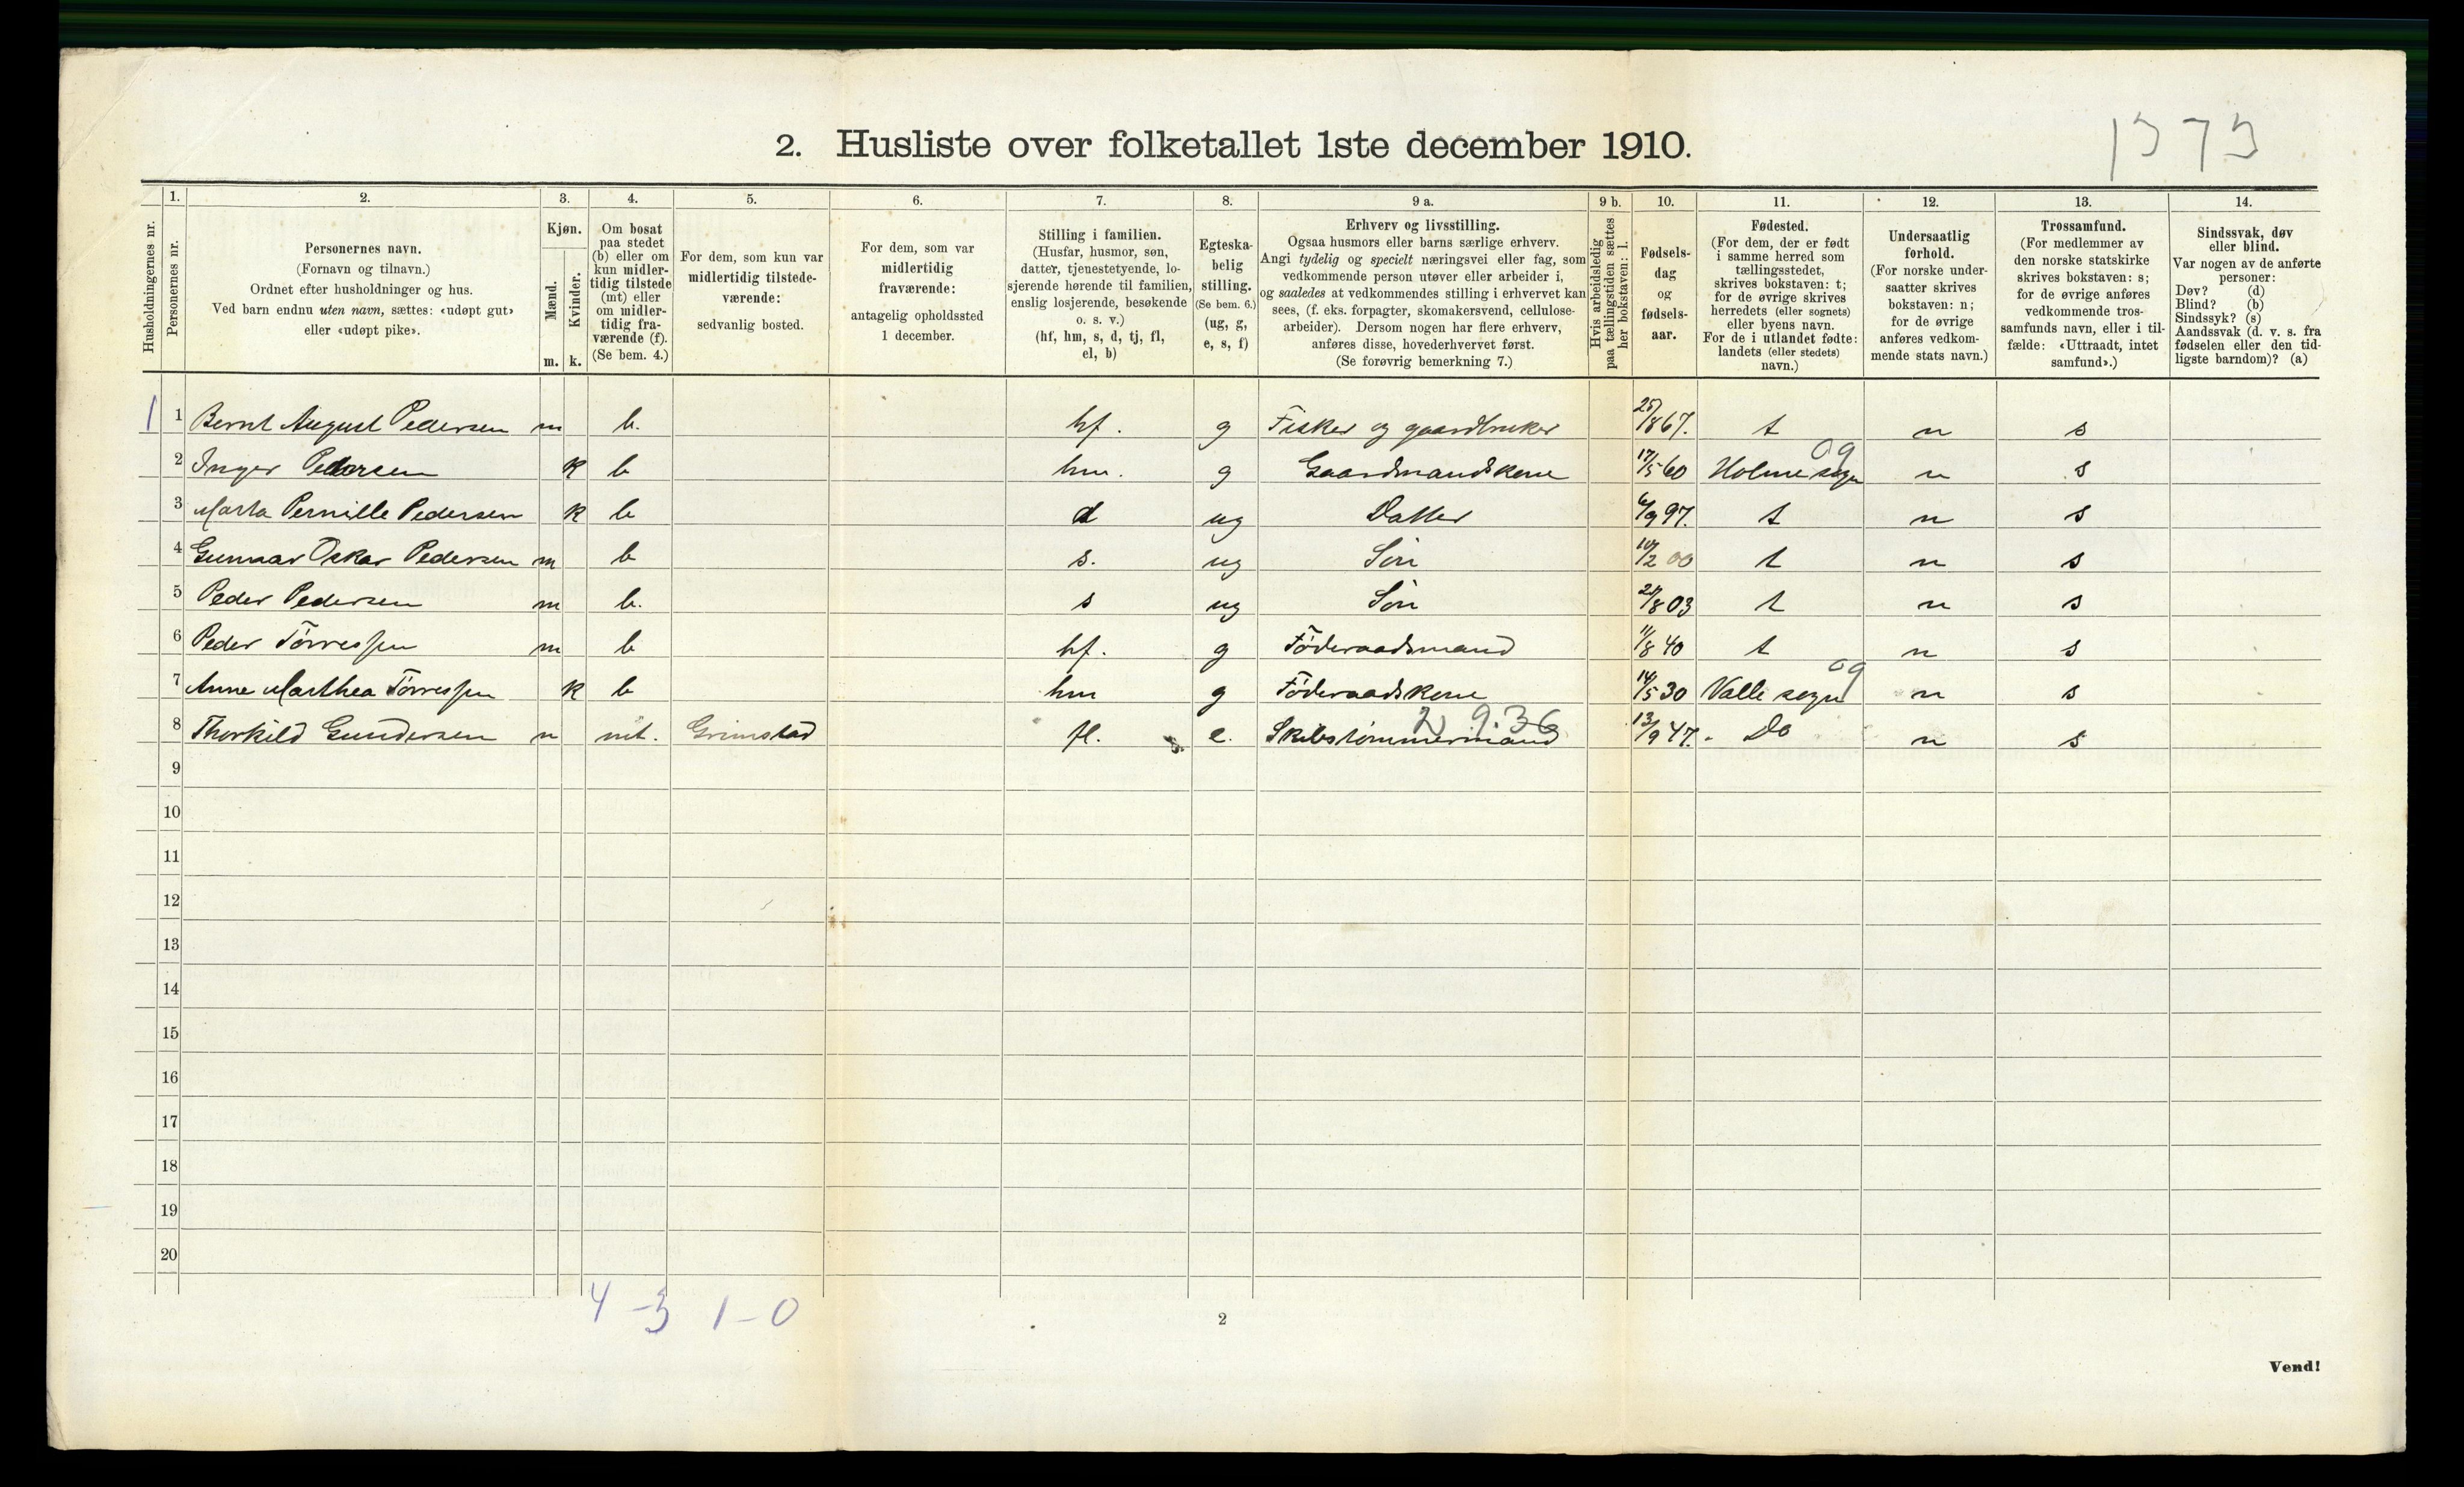 1575
2. Husliste over folketallet 1ste december 1910.
1. 2. 3. 4. 5. 6. 7. 8. 9 a. 9 b. 10. 11. 12. 13. 14.
Husholdningernes nr.
Personernes nr.
Personernes navn.
(Fornavn og tilnavn.)
Ordnet efter husholdninger og hus.
Ved barn endnu uten navn, sættes: «udøpt gut»
eller «udøpt pike».
Kjøn.
Mænd.
Kvinder.
m. k.
Om bosat
paa stedet
(b) eller om
kun midler-
tidig tilstede
(mt) eller
om midler-
tidig fra-
værende (f).
(Se bem. 4.)
For dem, som kun var
midlertidig tilstede-
værende:
sedvanlig bosted.
For dem, som var
midlertidig
fraværende:
antagelig opholdssted
1 december.
Stilling i familien.
(Husfar, husmor, søn,
datter, tjenestetyende, lo-
sjerende hørende til familien,
enslig losjerende, besøkende
o. s. v.)
(hf, hm, s, d, tj, fl,
el, b)
Egteska-
belig
stilling.
(Se bem. 6.)
(ug, g,
e, s, f)
Erhverv og livsstilling.
Ogsaa husmors eller barns særlige erhverv.
Angi tydelig og specielt næringsvei eller fag, som
vedkommende person utøver eller arbeider i,
og saaledes at vedkommendes stilling i erhvervet kan
sees, (f. eks. forpagter, skomakersvend, cellulose-
arbeider). Dersom nogen har flere erhverv,
anføres disse, hovederhvervet først.
(Se forøvrig bemerkning 7.)
Hvis arbeidsledig
paa tællingstiden sættes
her bokstaven: l.
Fødsels-
dag
og
fødsels-
aar.
Fødested.
(For dem, der er født
i samme herred som
tællingsstedet,
skrives bokstaven: t;
for de øvrige skrives
herredets (eller sognets)
eller byens navn.
For de i utlandet fødte:
landets (eller stedets)
navn.)
Undersaatlig
forhold.
(For norske under-
saatter skrives
bokstaven: n;
for de øvrige
anføres vedkom-
mende stats navn.)
Trossamfund.
(For medlemmer av
den norske statskirke
skrives bokstaven: s;
for de øvrige anføres
vedkommende tros-
samfunds navn, eller i til-
fælde: «Uttraadt, intet
samfund».)
Sindssvak, døv
eller blind.
Var nogen av de anførte
personer:
Døv? (d)
Blind? (b)
Sindssyk? (s)
Aandssvak (d. v. s. fra
fødselen eller den tid-
ligste barndom)? (a)
1 1 Bernt August Pedersen m b. hf. g Fisker og gaardbruker 25/8 67. t n s
09
2 Inger Pedersen k b hm. g Gaardmandskone 17/5 60 Holme sogn n s
3 Marta Pernille Pedersen k b d ug Datter 6/9 97. t n s
4 Gunnar Oskar Pedersen m b s. ug Søn 10/2 00 t n s
5 Peder Pedersen m b. s ug Søn 21/8 03 t n s
6 Peder Tørressen m b hf. g Føderaadsmand 11/8 40 t n s
09
7 Anne Marthea Tørressen k b hm g Føderaadskone 14/5 30 Valle sogn n s
2 9.36
8 Thorkild Gundersen m mt. Grimstad fl. e. Skibstømmermand 13/9 47. Do n s
9
10
11
12
13
14
15
16
17
18
19
20
4-3 1-0
2
Vend!